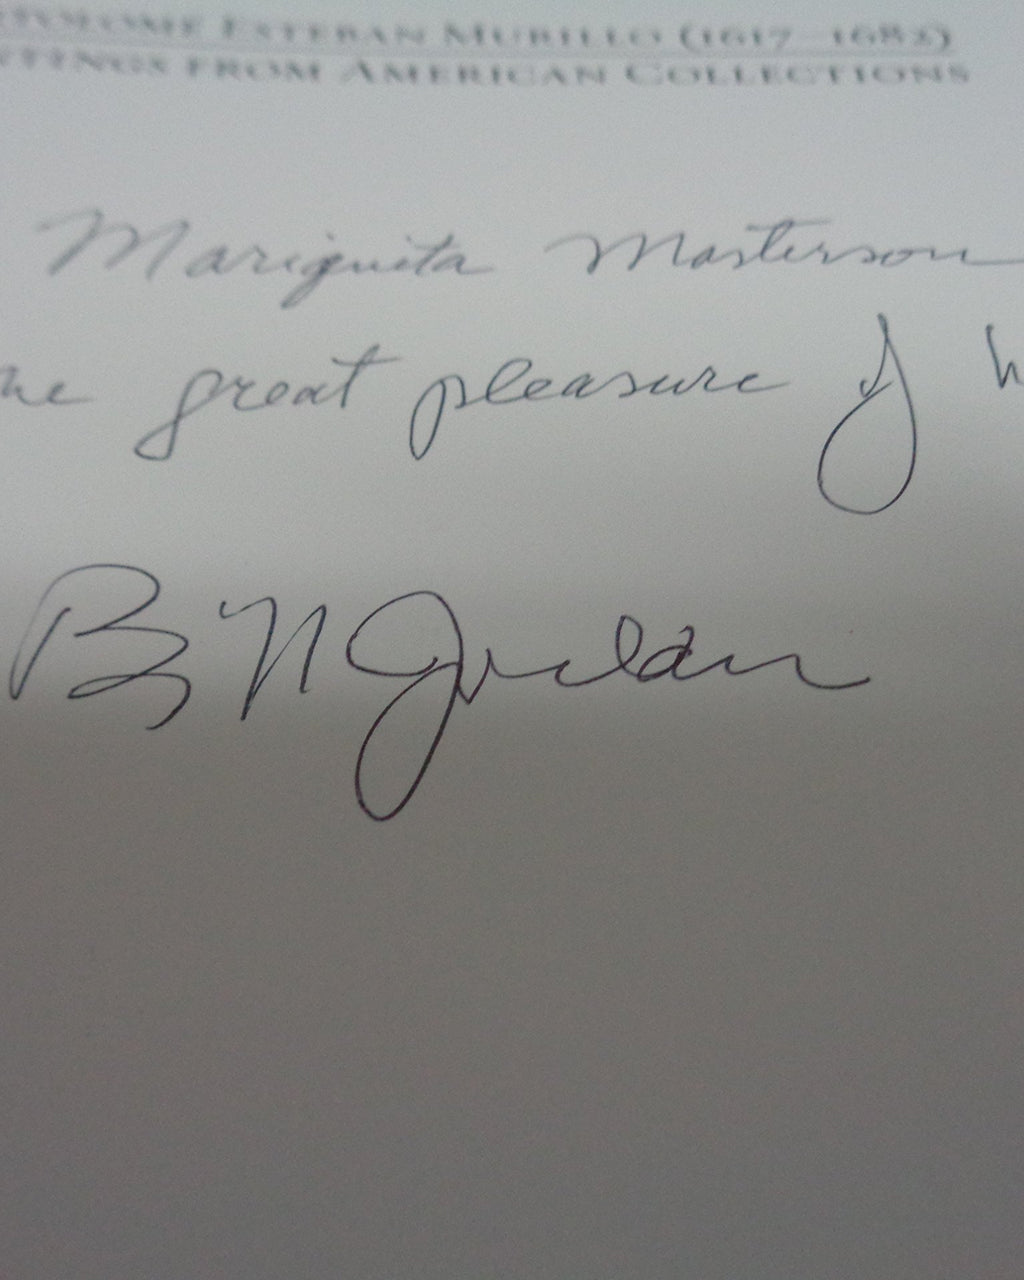 TOLOMÉ ESTEBAN MURILLO (1617–1682)
TINGS FROM AMERICAN COLLECTIONS
Mariquita Masterson
he great pleasure of h
B N Jordan